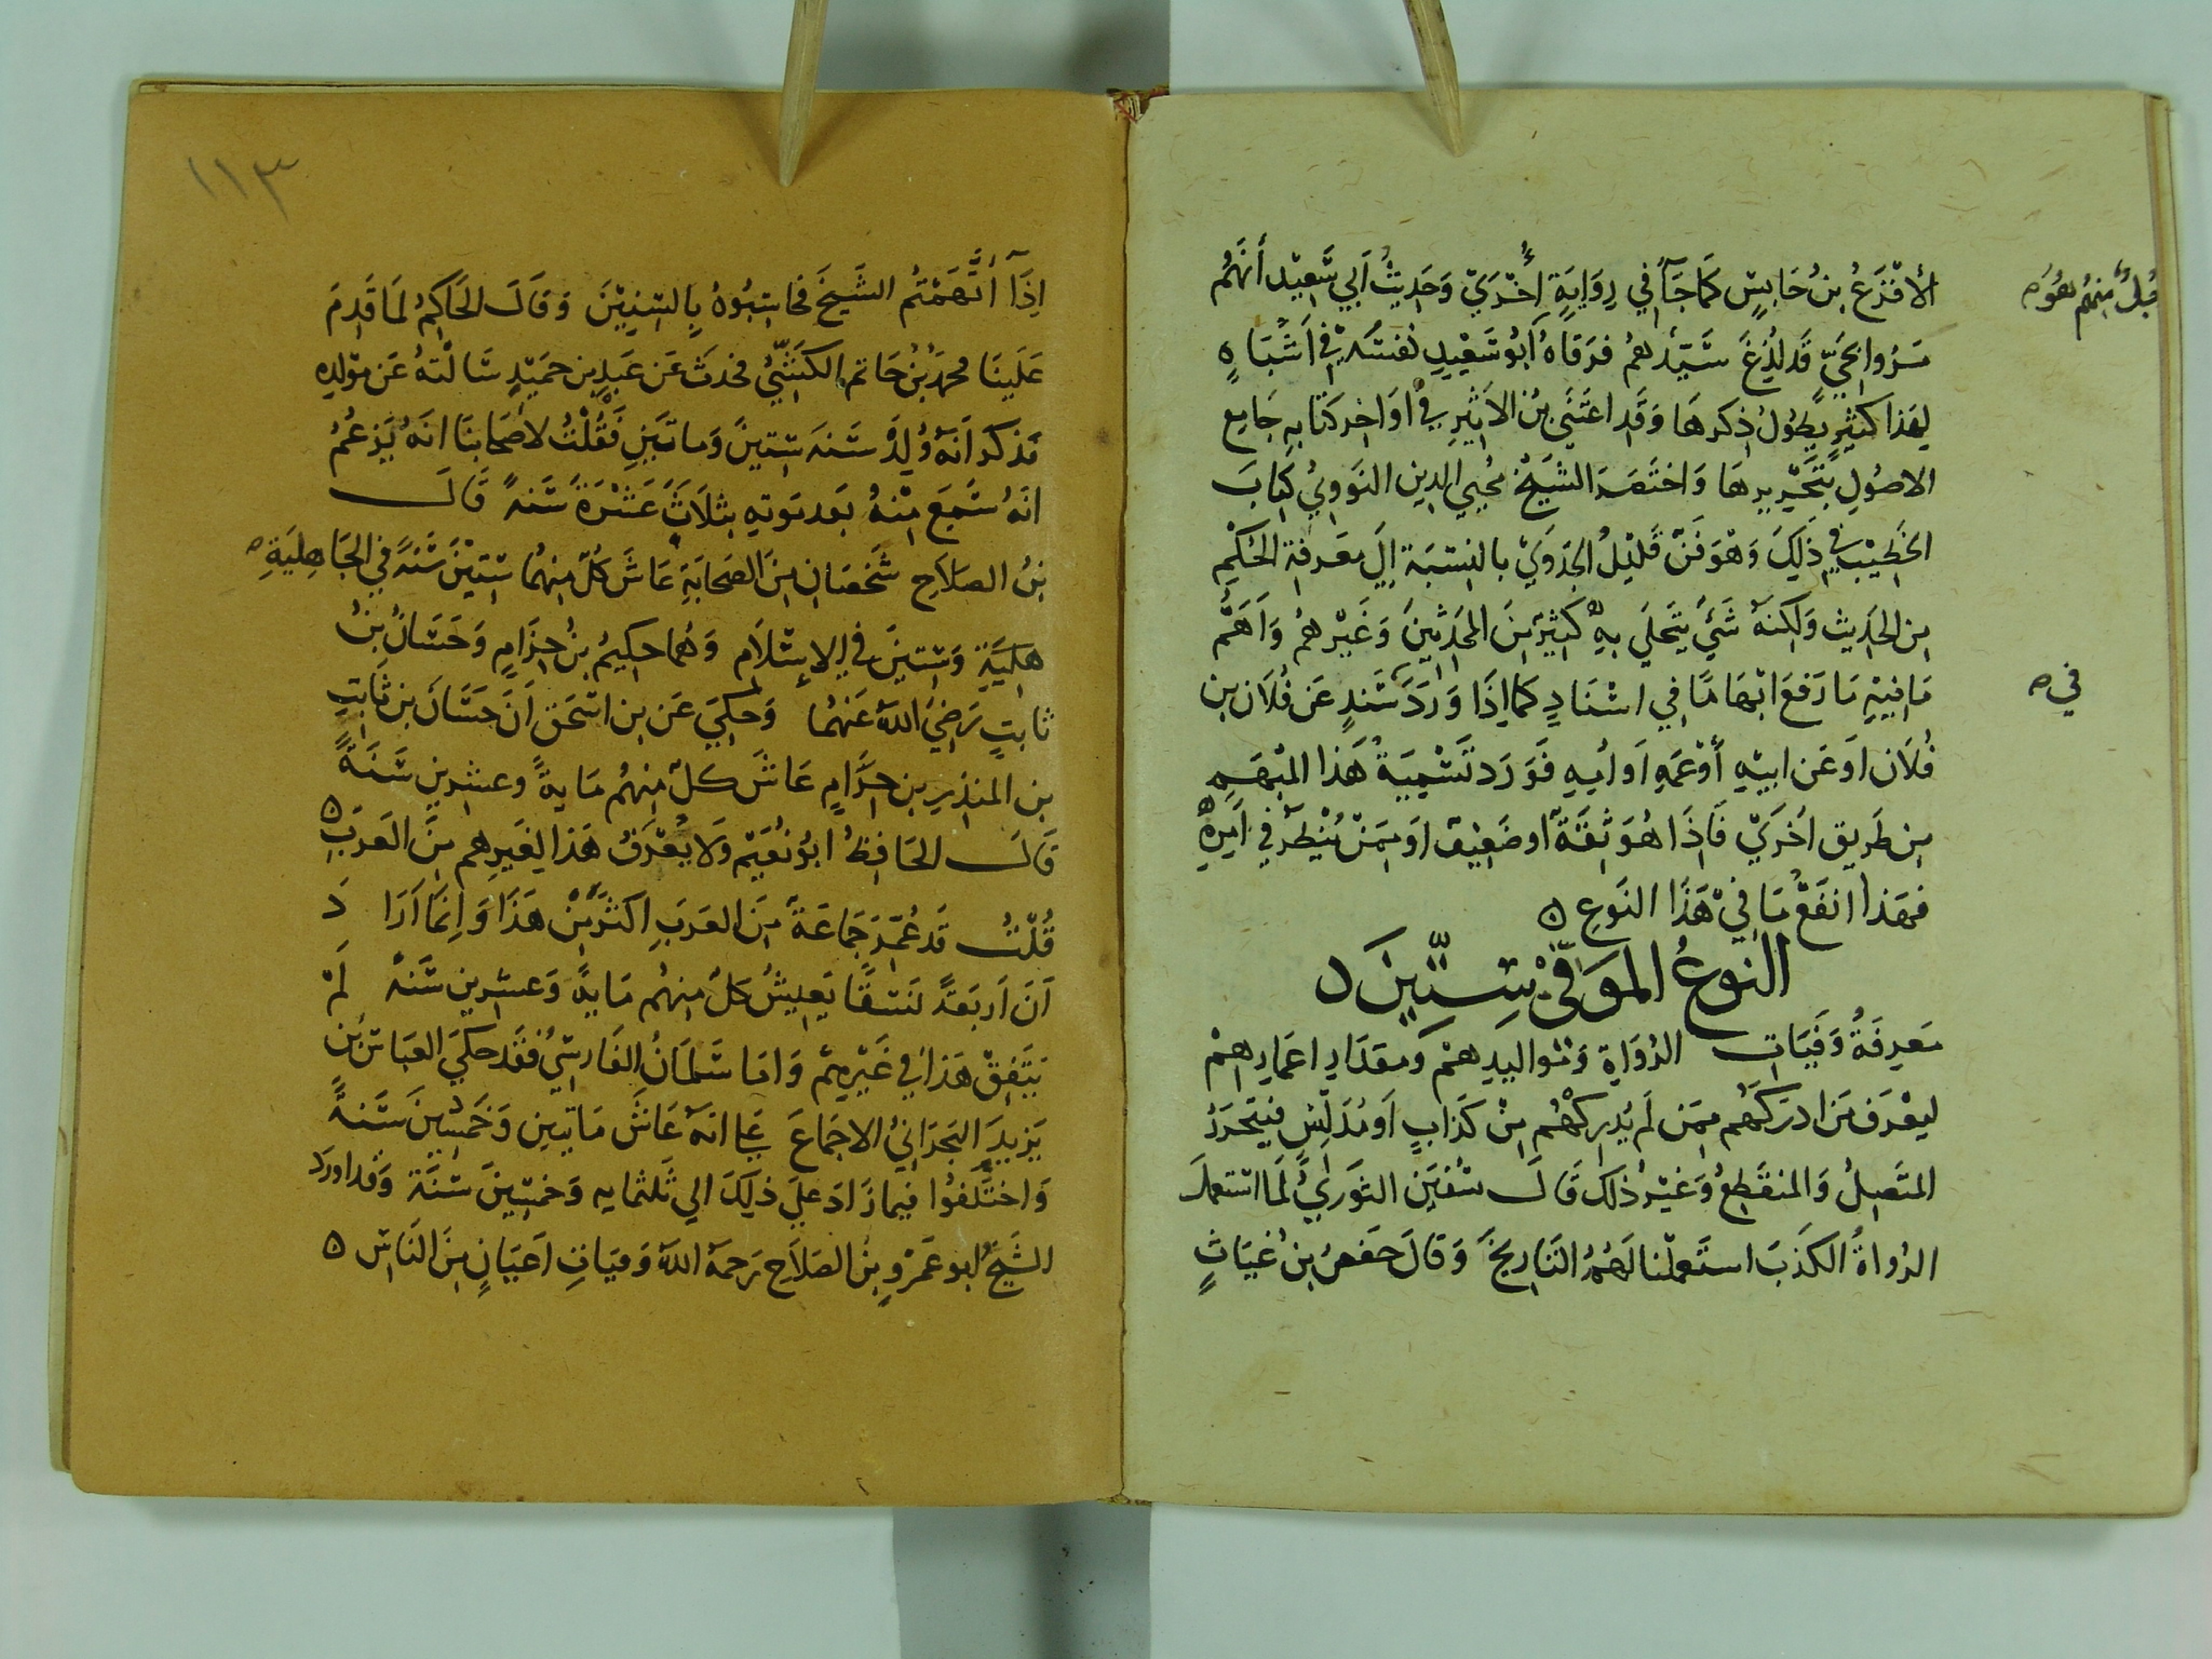 الأقْرَعُ بنُ حَابِسٍ كَمَا جَآءَ في رِوَايَةٍ أُخْرَيْ وَحَدِيثُ أبي سَعِيْد أنهُم
مَرُّوا بِحَيٍّ قَد لُدِغَ سَيِّدُهُم فَرَقَاهُ أبُو سَعِيْدٍ نَفسُه في اَشبَاهٍ
لِهذا كثيرٍ يَطُولُ ذِكرها وَقد اعتَنَى بنُ الاثِيرِ في أوَاخِر كتابهِ جَامِع
الاصُولِ بتَحْرِيرهَا وَاختَصَرَ الشَيْخُ مُحيي الدين النَوَوِيُ كِتابَ
الخَطِيْبِ في ذَلِكَ وَهْوَ فَنٌ قَلِيْلُ الجَدوَيْ بالنِسْبَةِ إلي مَعرفة الحُكْمِ
مِن الحَدِيث وَلكِنهُ شَيءٌ يَتَحَلي بِهِ كثيرٌ مِنَ المُحَدِثِينَ وَغَيْرهُم وَاَهَمُّ
مَا فِيهِ مَا رَفعَ ابْهَامًا في اسْنَادٍ كَمَا إذَا وَرَدَ سَنَدٌ عَن فُلَان بن
فُلَان اَو عَن ابِيهِ أوْعَمِهِ اَو اُمِهِ فَوَرَدَ تَسْمِيَةُ هَذا المُبْهَمِ
مِن طَرِيق اُخرَيْ فَاذَا هُوَ ثِقَةٌ او ضَعِيفٌ اوَ مِمَنْ يُنْظَرُ في اَمرِهِ
فهَذا انفَعُ مَا فيْ هَذَا النَوعِ ٥
النوعُ المُوَفّي سِتّينَ
مَعرِفَةُ وَفَيَاتِ الرُوَاةِ وَمَواليدِهمْ وَمِقدَارِ اعمَارِهِمْ
ليعْرَفَ مَن ادرَكَهُم مِمَن لَم يُدرِكْهُم مِنْ كَذَابٍ اَو مُدَلِّسٍ فيَتَحَرَرُ
المتَصِلُ وَالمنقَطِعُ وَغَيْرُ ذَلكَ قَالَ سُفيَن الثَوريُّ لَمَا استَعمَلَ
الرُواةُ الكَذبَ استَعمَلنا لَهُمُ التَاريخَ وَقَالَ حَفصُ بنُ غِيَاثٍ
في ص
١١٣
اِذَآ اتَّهَمْتُم الشَيخَ فحاسِبُوهُ بِالسِنِيْنَ وَقَالَ الحَاكِمُ لمَا قَدِمَ
عَلَينَا محمدُ بنُ حَاتم الكَشّيُّ فحدَثَ عَن عَبدِ بن حمَيْدٍ سَالتهُ عَن مَوْلِدِهِ
فذكَرَ اَنهُ وُلِدَ سَنة سِتِينَ وَمائتَينِ فَقُلْتُ لاصحَابنَا انهُ يَزعُمُ
انَهُ سَمعَ مِنهُ بَعد مَوتهِ بثلَاثَ عَشْرَةَ سَنةً قَالَ
بنُ الصَلاَحِ شَخصَانِ مِنَ الصَحَابَةِ عَاشَ كلٌ مِنهُمَا سِتِيْنَ سَنَةً في الجَاهِلِيَةِ ص
هلِيَةِ وَسِتينَ في الإسْلَام وَهُما حكِيمُ بنُ حِزَامٍ وَحَسَانُ بنُ
ثابتٍ رَضِيَ اللهُ عَنهُمَا وَحُكِيَ عَن بن اسحَق أنَ حَسَّانَ بن ثَابتٍ
بن المنذِرِ بن حرَامٍ عَاشَ كلٌ مِنهُم مَايةً وعشرين سَنَةً
قَالَ الحَافِظُ ابوُ نُعَيْم وَلَا يُعْرَفُ هَذا لِغَيرِهِم مِنَ العَرَبِ ٥
قُلْتُ قَد عُمِّرَ جَمَاعَةٌ مِنَ العَرَبِ اكثرُ مِنْ هَذَا وَاِنَمَا اَرَا دَ
اَنَ اَربَعَةً نَسَقًا يَعِيشُ كلٌ مِنهُم مَايةً وَعشرين سَنَةً لَمْ
يَتَفِقْ هَذا في غَيْرِهِمْ وَامَا سَلمَانُ الفَارسِيُ فقَد حكيَ العَبَاسُ بن
يَزِيدَ البَحرَانيُ الاجمَاعَ علي انهُ عَاشَ مَائتينِ وَخَمسِينَ سَنةً
وَاختَلفُوا فيمازَادَ عليَ ذلِكَ الي ثَلثمايه وَخمسِينَ سَنَةً وَقد اورَدَ
الشَيخُ ابو عَمْرٍو بنُ الصَلَاحِ رَحمَهُ اللهُ وَفيَاتِ اَعيَانٍ مِنَ النَاسِ ٥